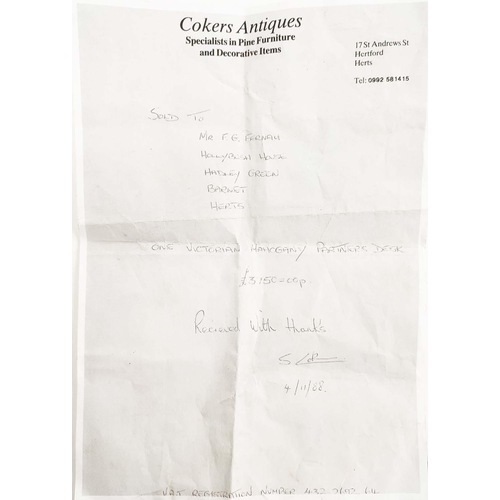 Cokers Antiques
Specialists in Pine Furniture
and Decorative Items
17 St Andrews St
Hertford
Herts
Tel: 0992 581415
Sold To
Mr F.G.
Hollybush House
Hadley Green
Barnet
Herts
One Victorian Mahogany Partners Desk
£3150=00p
Recieved with thanks
4/11/88.
VAT Registration Number